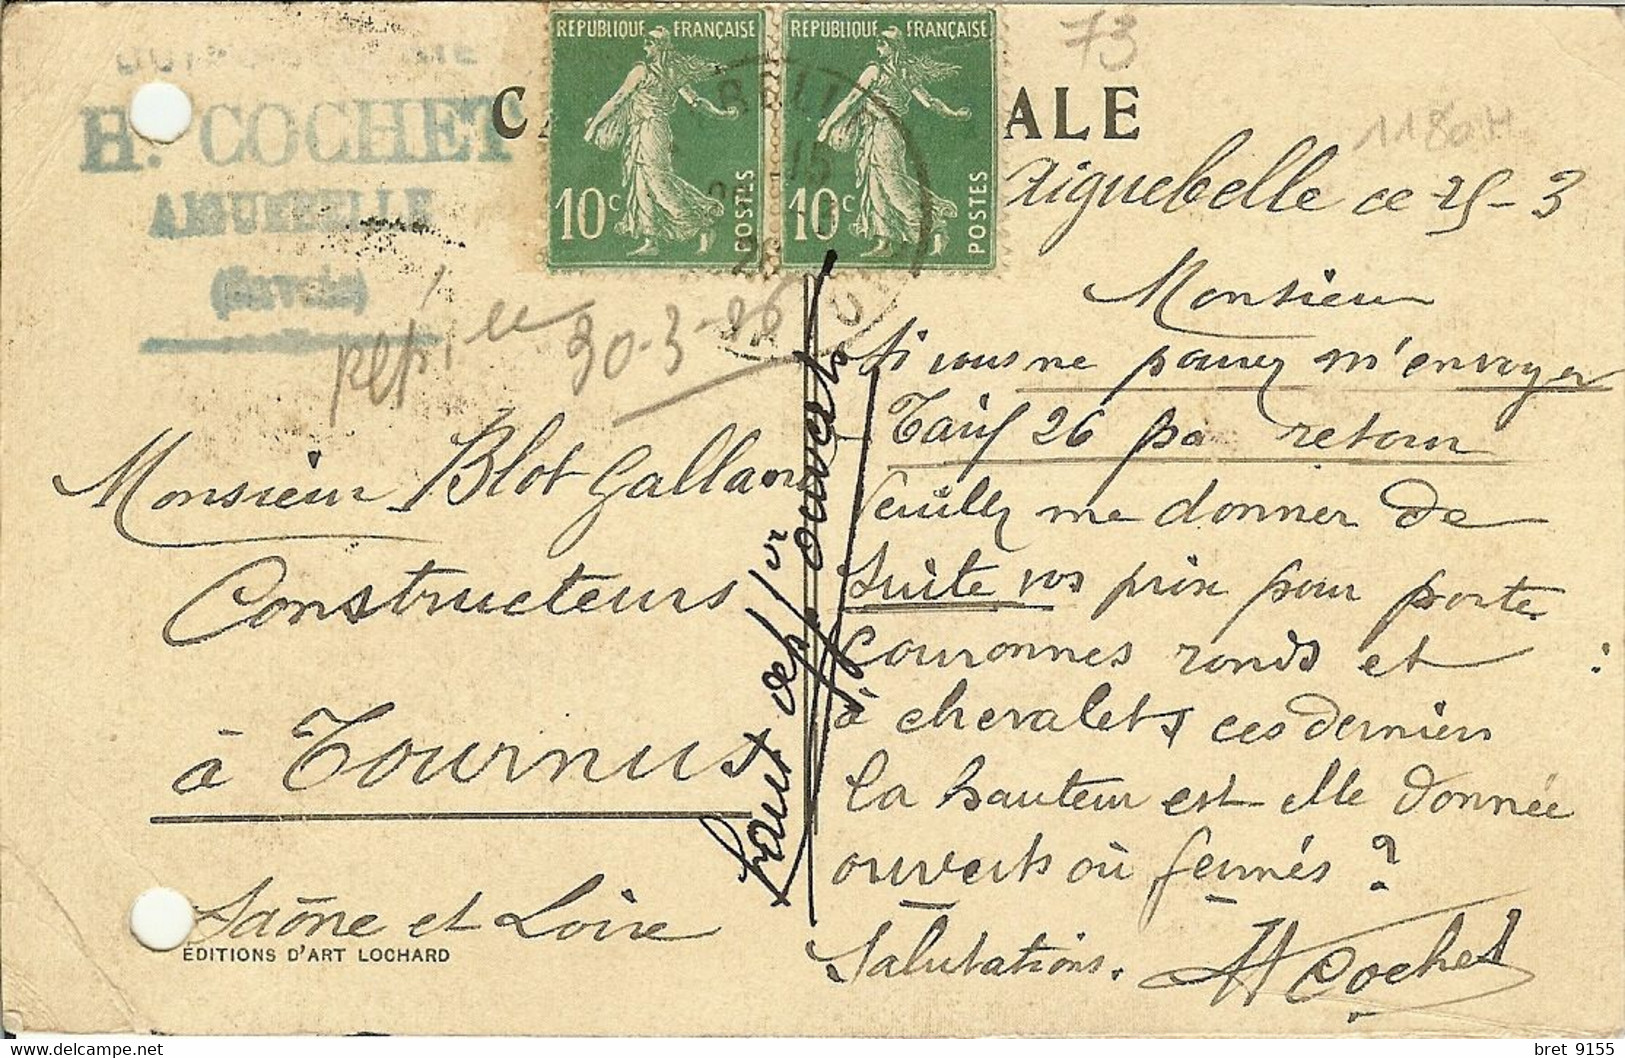 H. COCHET
AIGUEBELLE
(Savoie)
RÉPUBLIQUE FRANÇAISE
10c POSTES
RÉPUBLIQUE FRANÇAISE
10c POSTES
CA ALE
73
1180H
Aiguebelle ce 25-3
Monsieur
Si vous ne pouvez m'envoyer
Tarif 26 par retour
Veuillez me donner de
suite vos prix pour porte
couronnes ronds et :
à chevalets ces derniers
la hauteur est elle donnée
ouverts où fermés ?
Salutations. H Cochet
30-3-26
Monsieur Blot Galland
Constructeurs
à Tournus
Saône et Loire
ÉDITIONS D'ART LOCHARD
haut dep/ ouverts
bret 9155